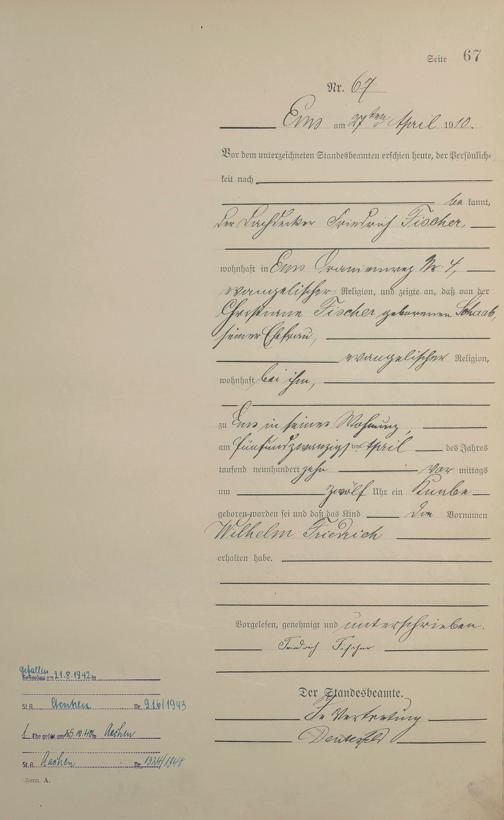 Seite 67
Nr. 67
Ems am 27ten April 1910.
Vor dem unterzeichneten Standesbeamten erschien heute, der Persönlich-
keit nach
be kannt,
der Dachdecker Friedrich Fischer,
wohnhaft in Ems Oranienweg Nr 4,
evangelischer Religion, und zeigte an, daß von der
Christiane Fischer geborenen Schaab,
seiner Ehefrau,
evangelischer Religion,
wohnhaft bei ihm,
zu Ems in seiner Wohnung,
am fünfundzwanzigsten April des Jahres
tausend neunhundert zehn vor mittags
um zwölf Uhr ein Knabe
geboren worden sei und daß das Kind die Vornamen
Wilhelm Friedrich
erhalten habe.
Vorgelesen, genehmigt und unterschrieben.
Friedrich Fischer
Der Standesbeamte.
In Vertretung
gefallen
21.8.1942
St.A. Nr. 216/1943
1. Ehe Aachen
St.A. Aachen Nr.
Form. A.